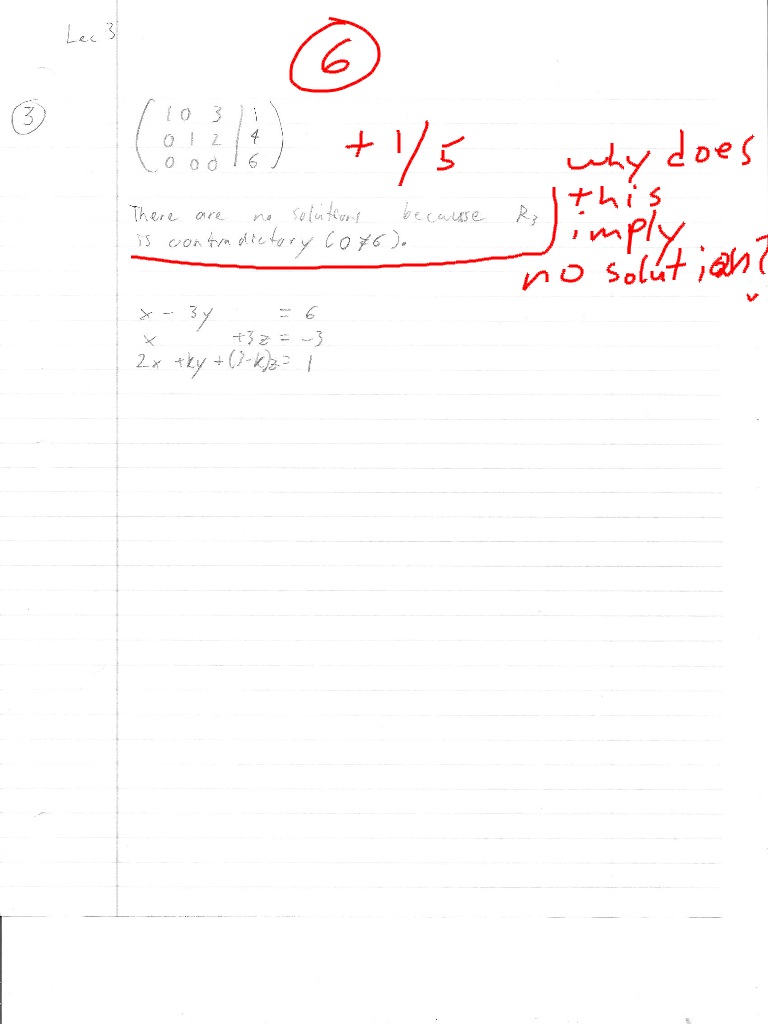 Lec 3
6
3
1 0 3 | 1
0 1 2 | 4
0 0 0 | 6
+ 1/5
why does
this
imply
no solution?
There are no solutions because R3
is contradictory (0≠6).
x - 3y = 6
x +3z = -3
2x +ky +(3-k)z= 1